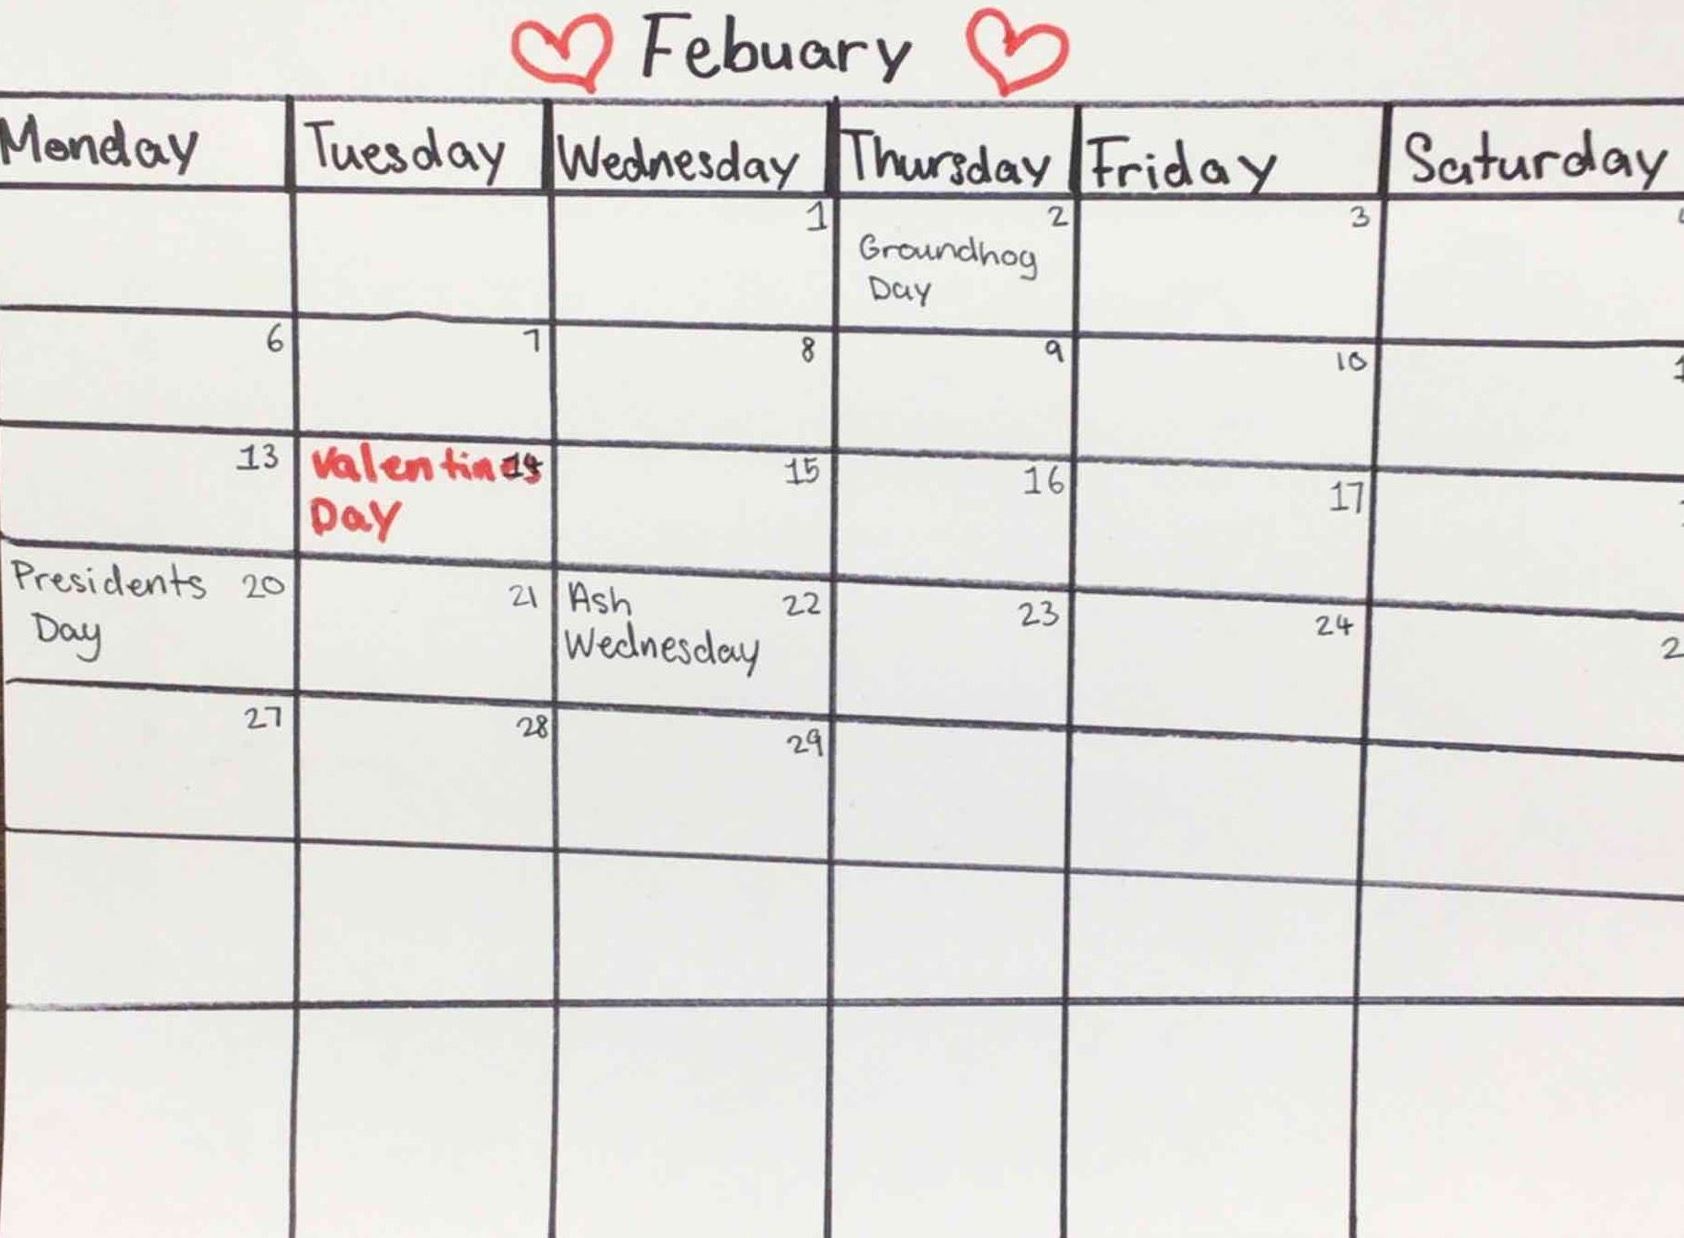 Febuary
Monday Tuesday Wednesday Thursday Friday Saturday
1 2 3
Groundhog
Day
6 7 8 9 10
13 Valentines 14 15 16 17
Day
Presidents 20 21 Ash 22 23 24
Day Wednesday
27 28 29